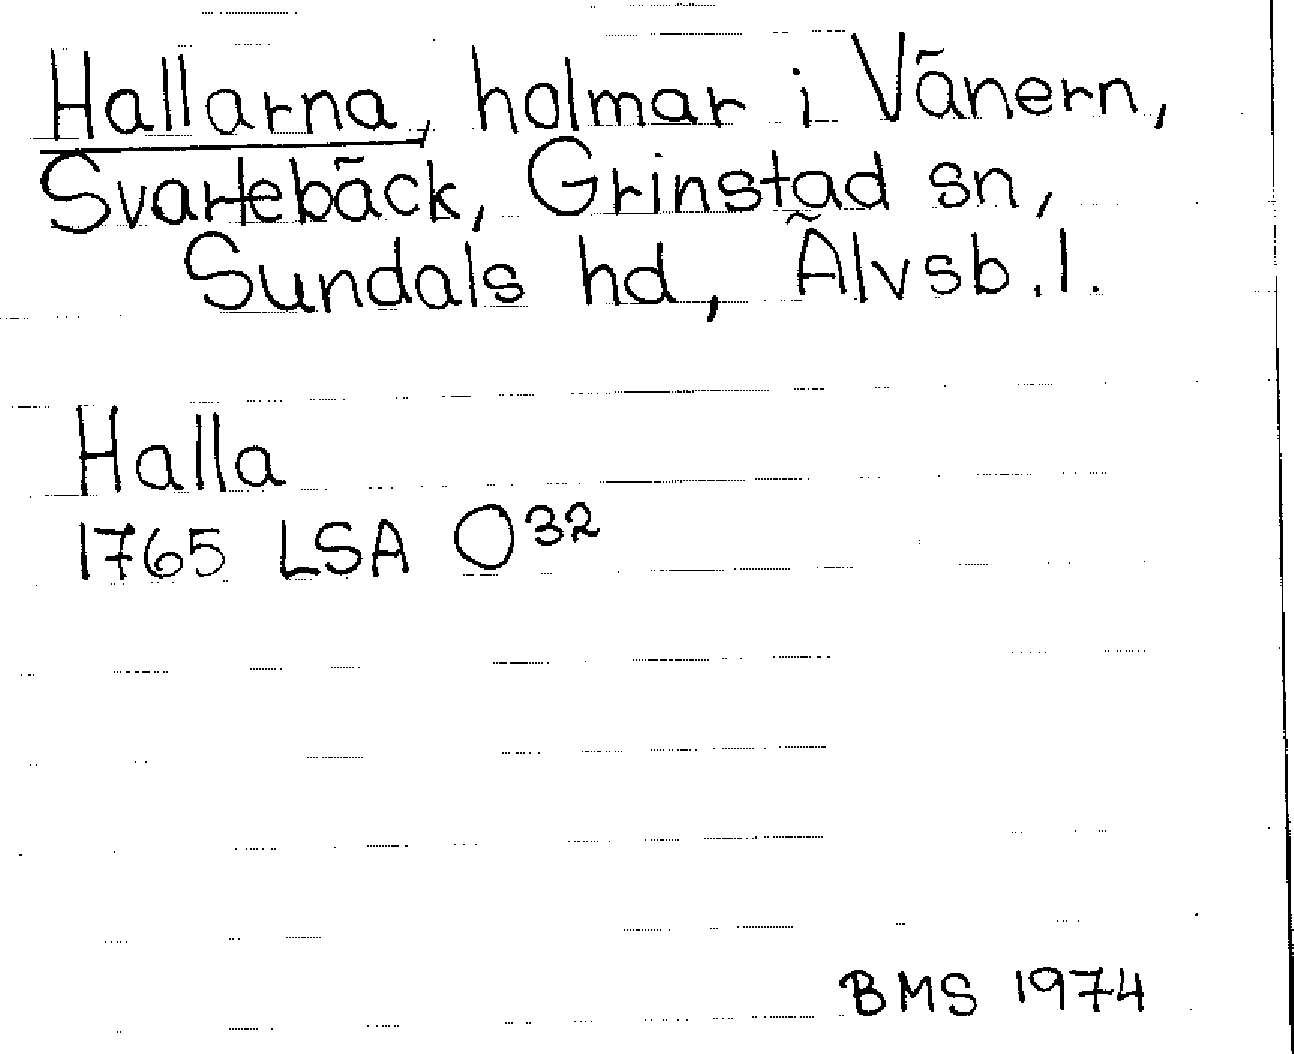 Hallarna, holmar i Vänern,
Svartebäck, Grinstad sn,
Sundals hd, Älvsb. l.
Halla
1765 LSA O32
BMS 1974